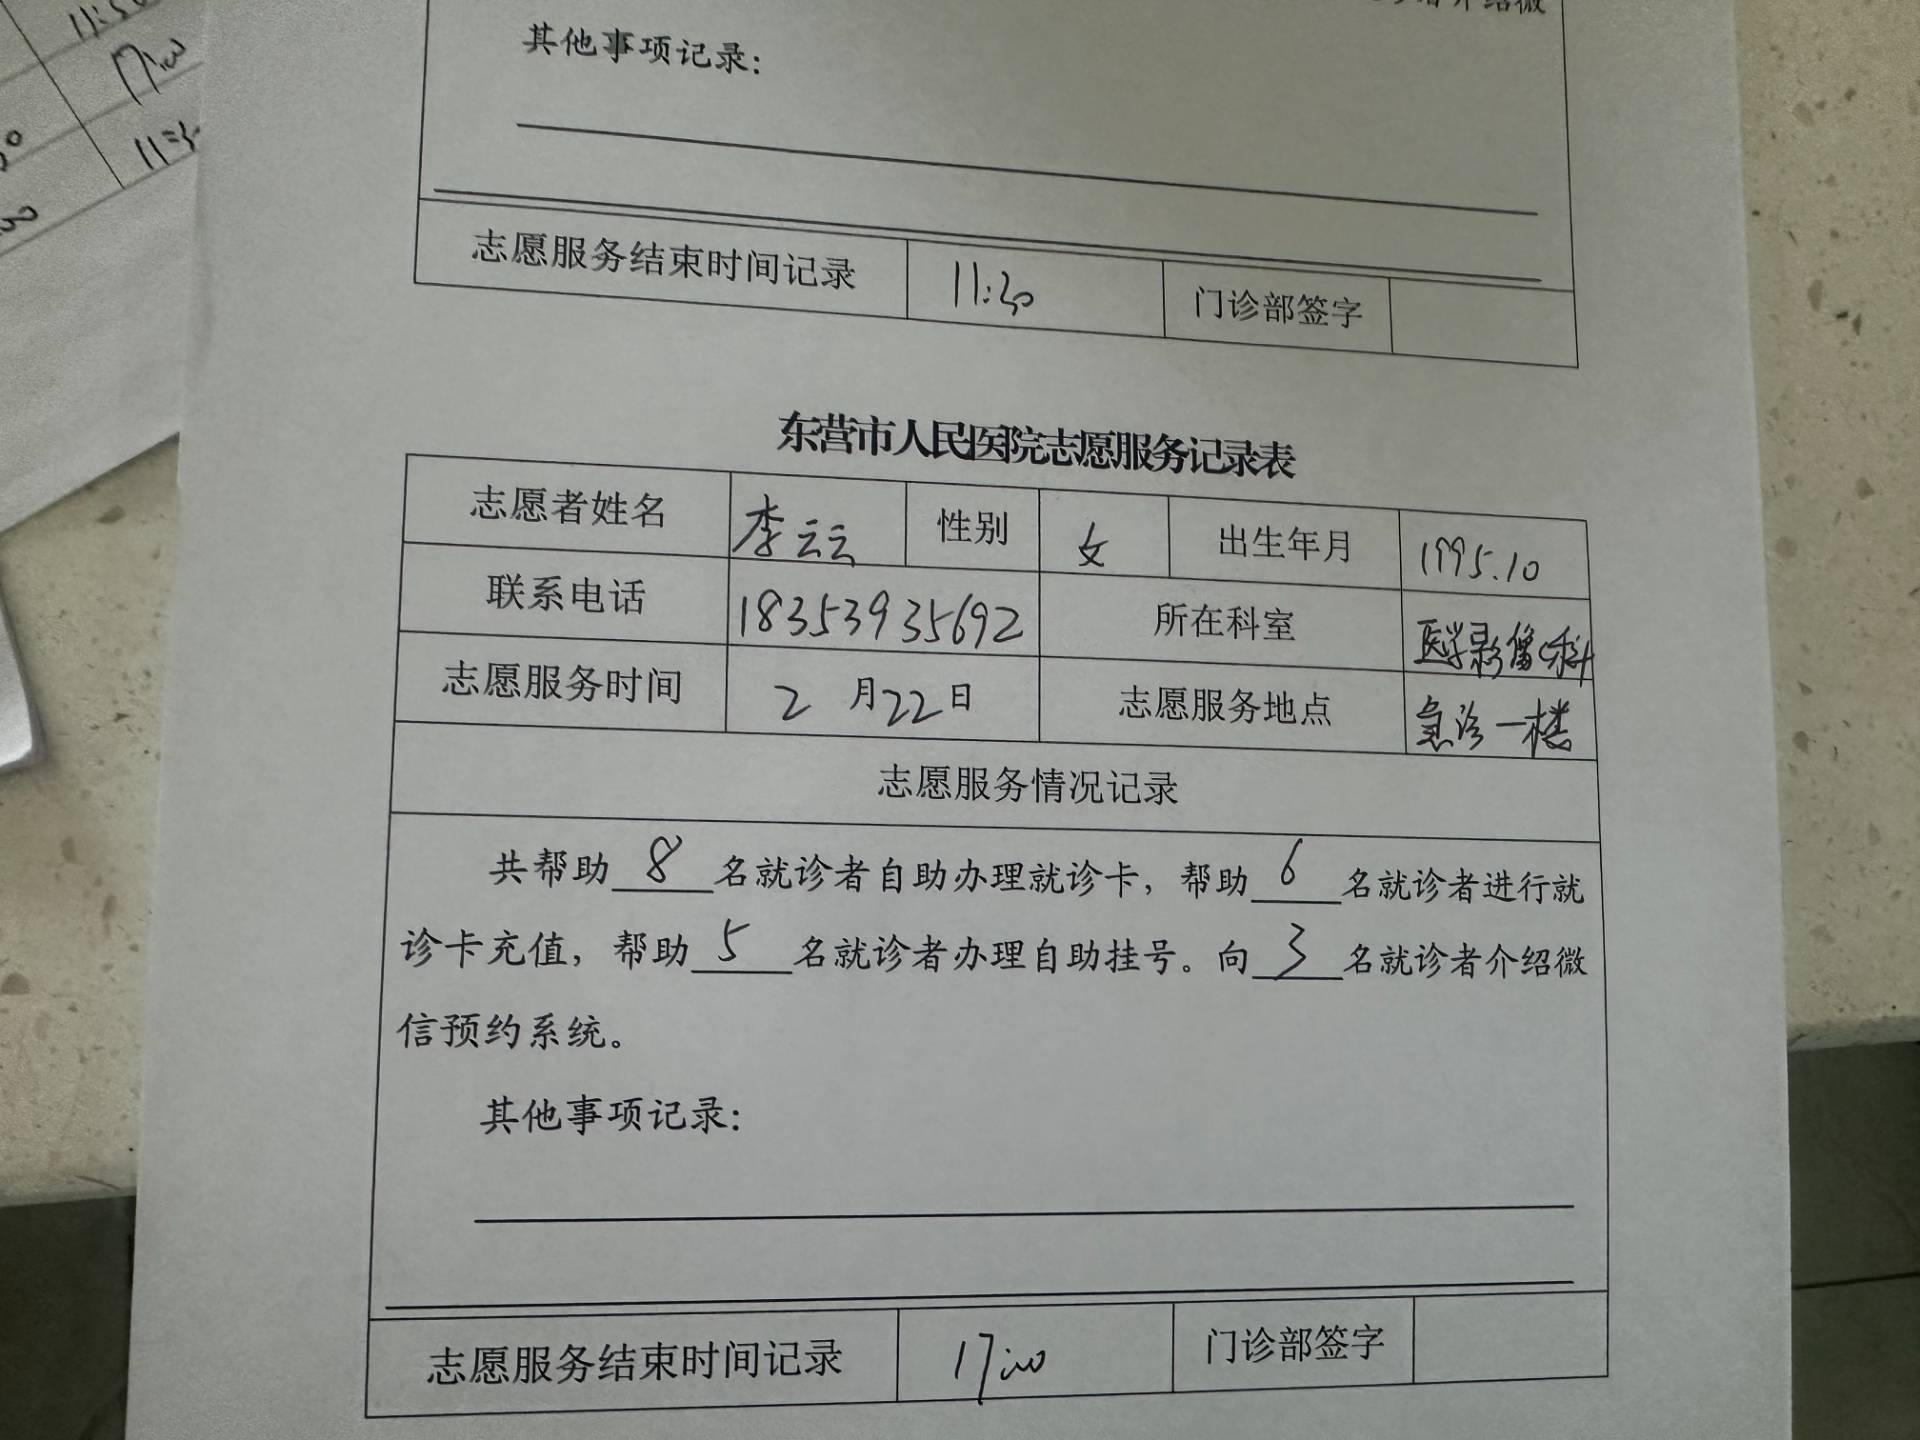 11:30
17:00
11:30
介绍微
其他事项记录：
志愿服务结束时间记录 11:30 门诊部签字
东营市人民医院志愿服务记录表
志愿者姓名 李云云 性别 女 出生年月 1995.10
联系电话 18353935692 所在科室 医学影像科
志愿服务时间 2月22日 志愿服务地点 急诊一楼
志愿服务情况记录
共帮助8名就诊者自助办理就诊卡，帮助6名就诊者进行就
诊卡充值，帮助5名就诊者办理自助挂号。向3名就诊者介绍微
信预约系统。
其他事项记录：
志愿服务结束时间记录 17:00 门诊部签字